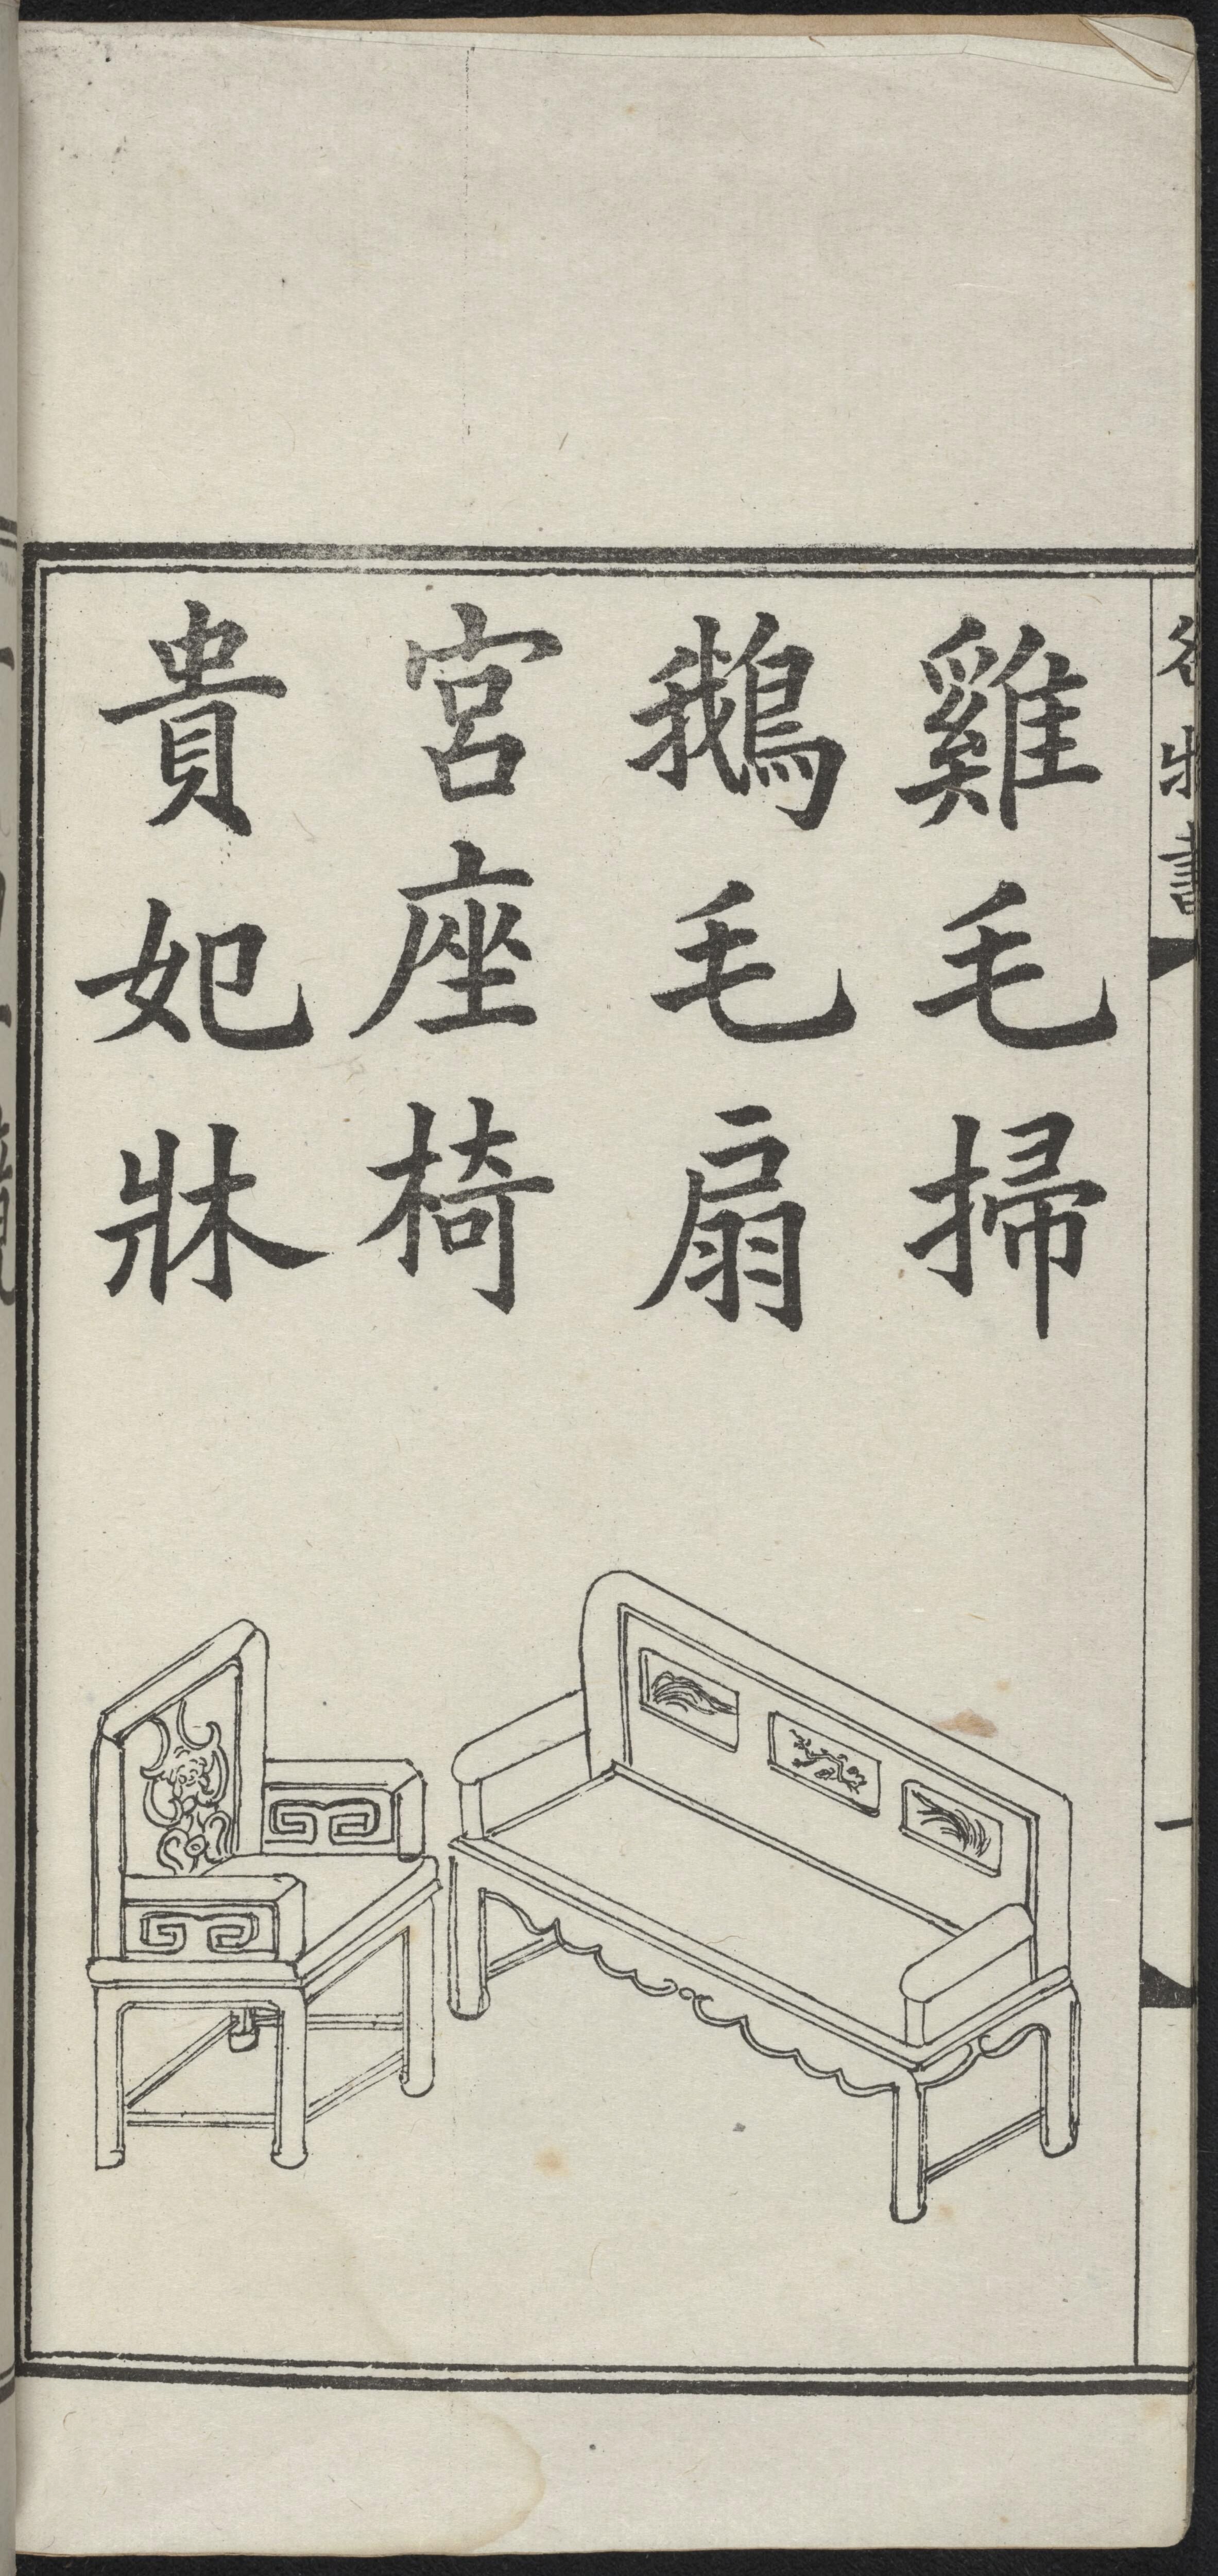 雞毛掃
鵝毛扇
宮座椅
貴妃牀